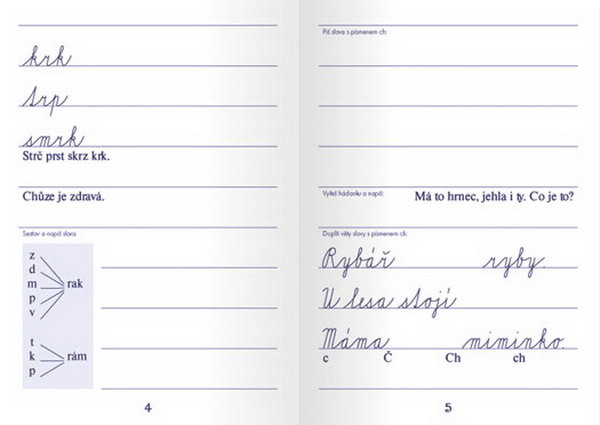 krk
trp
smrk
Strč prst skrz krk.
Chůze je zdravá.
Sestav a napiš slova:
z
d
m
p
v
rak
t
k
p
rám
4
Piš slova s písmenem ch:
Vyřeš hádanku a napiš:
Má to hrnec, jehla i ty. Co je to?
Doplň věty slovy s písmenem ch:
Rybář ryby.
U lesa stojí
Máma miminko.
c Č Ch ch
5